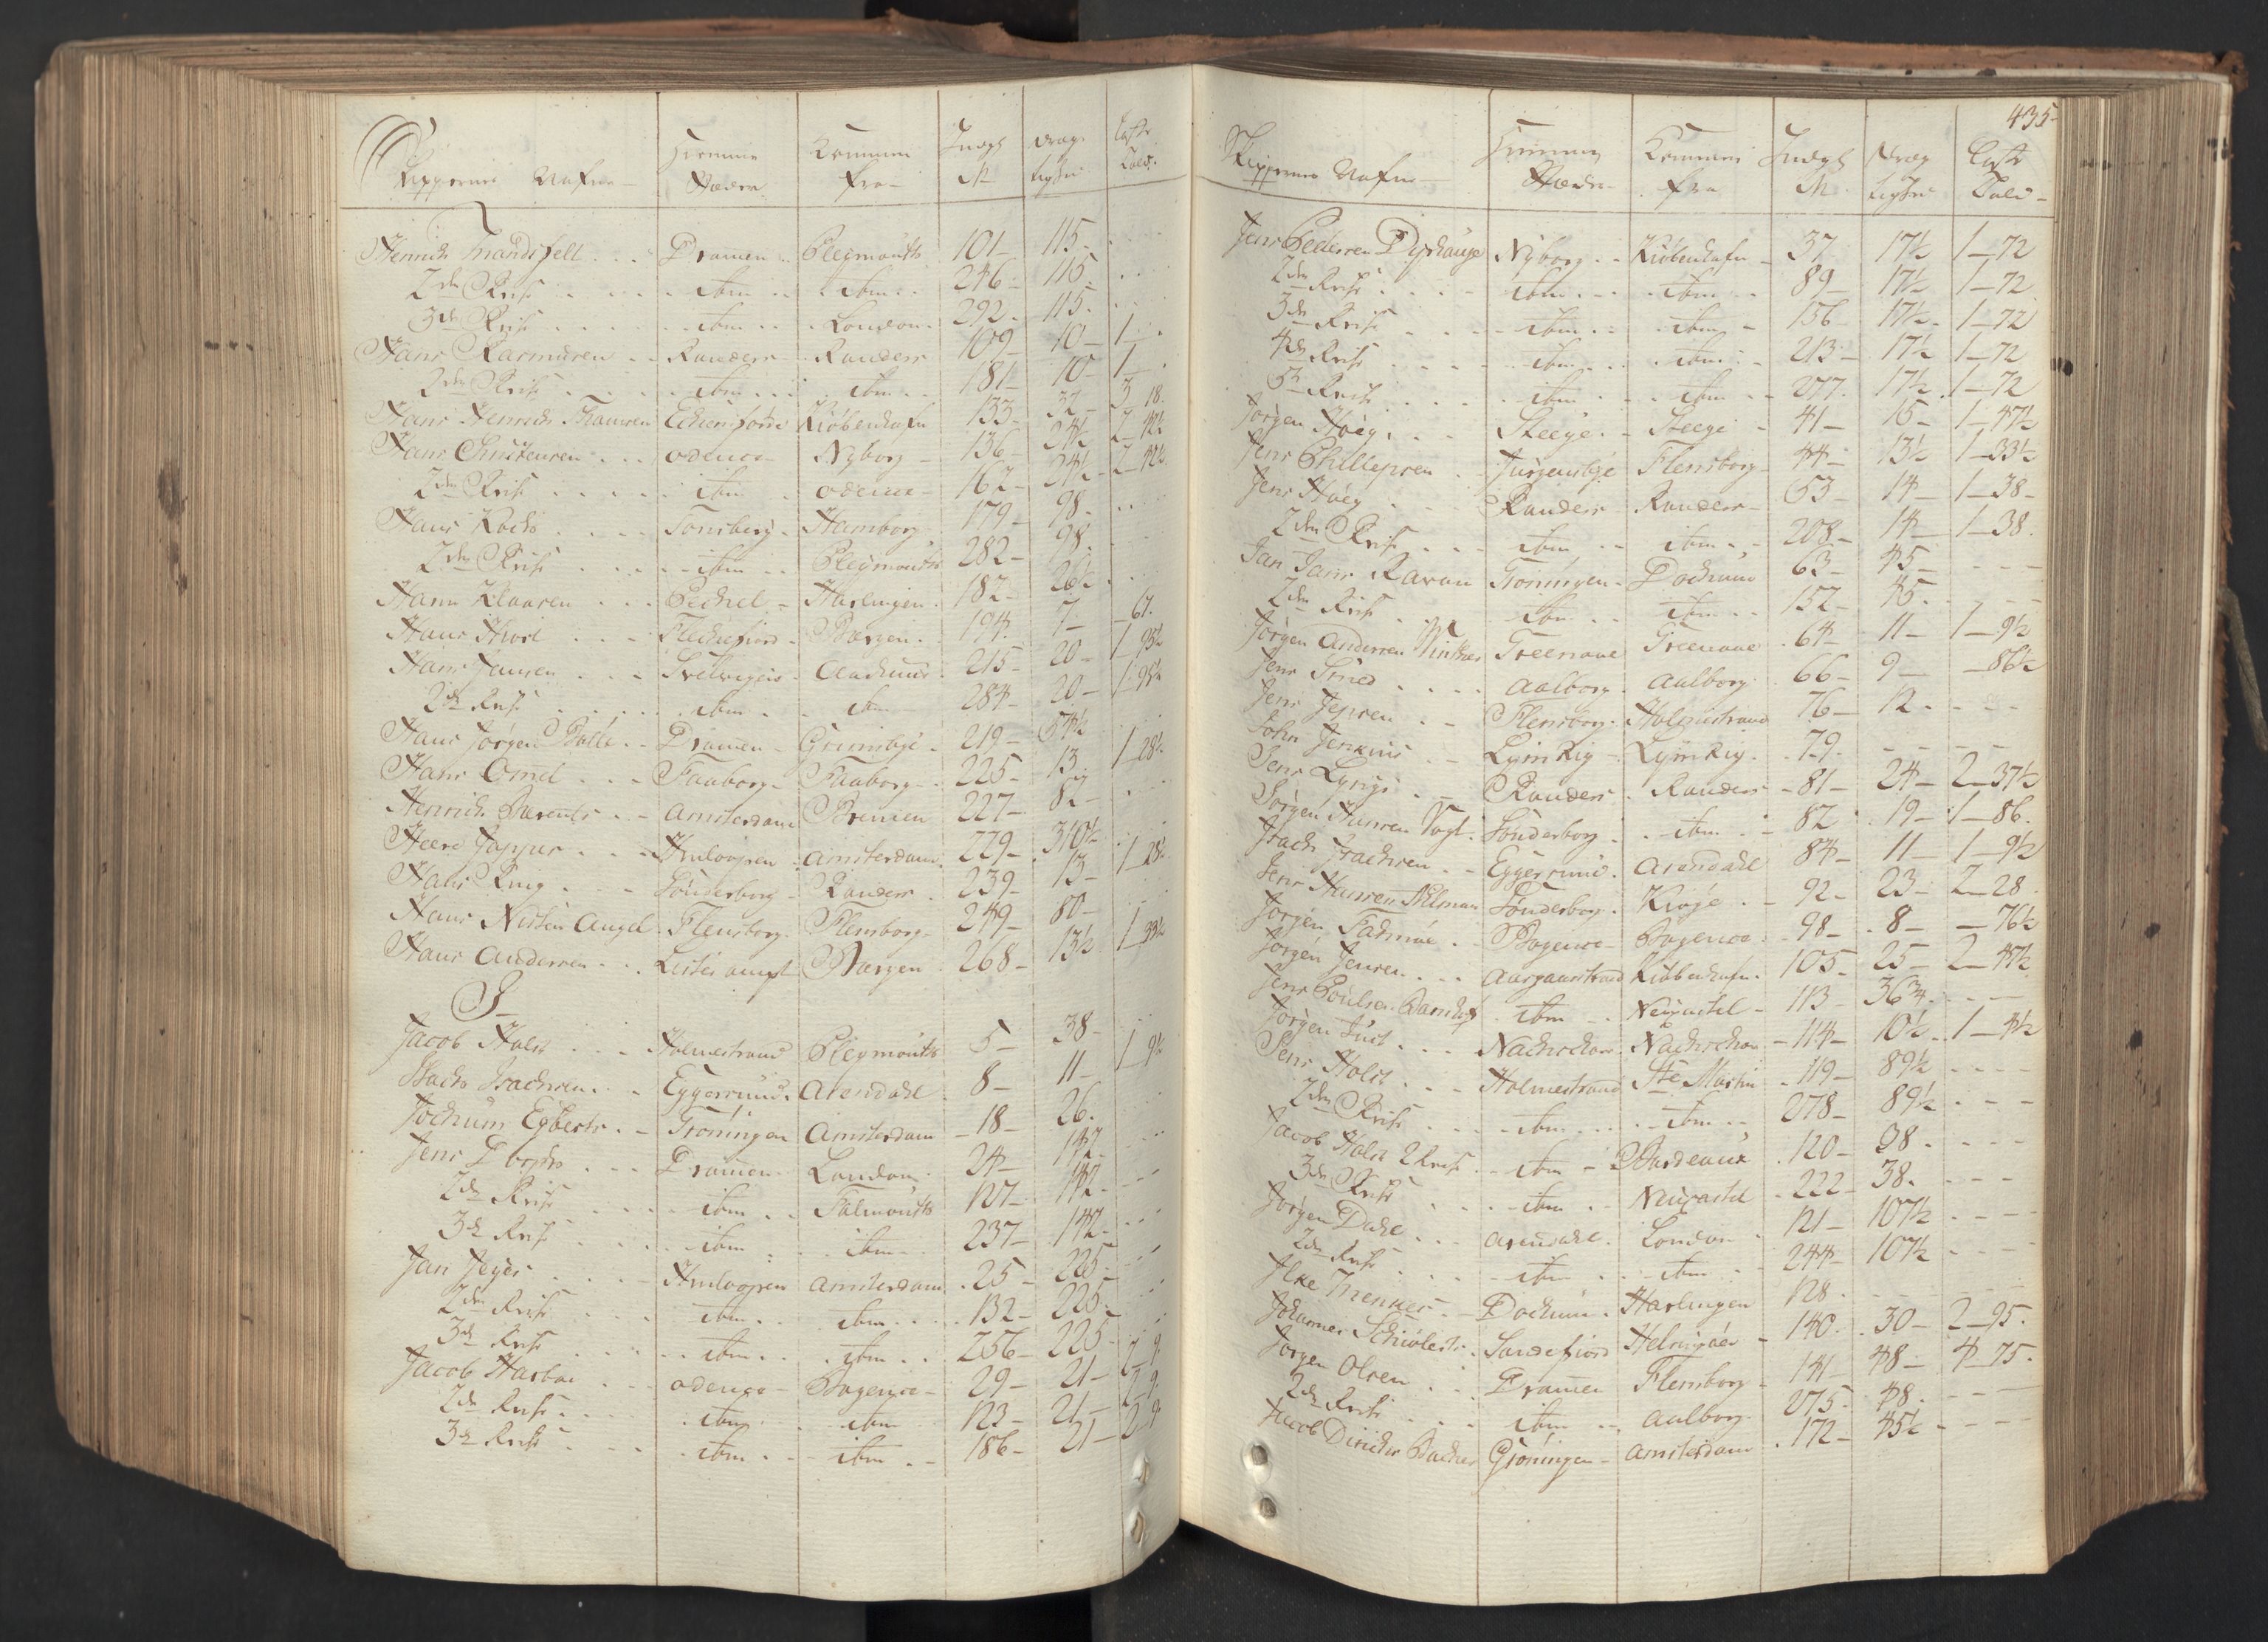 Skippernes Nafne Hiemme Stædern Kommen fra Indgs No Dræg tighed Læste Told
Henrich Trandsfelt Dramen Pleymouth 101 115
2den Reise ibm ibm 246 115
3de Reise ibm London 292 115
Hans Rasmusen Randers Randers 109 10 1
2den Reise ibm ibm 181 10 1
Hans Henrich Thomsen Eckernförde Kiöbenhafn 133 32 3 18
Hans Christensen Odense Nyborg 136 24½ 2 42½
2den Reise ibm Odense 162 24½ 2 42½
Hans Kochs Tonsberg Hamborg 179 98
2den Reise ibm Pleymouth 282 98
Hann Klaasen Pechel Harlingen 182 26½
Hans Thore Fleckefiord Bergen 194 7 67
Hans Jansen Svelvigen Aarhuus 215 20 1 95½
2de Reise ibm ibm 284 20 1 95½
Hans Jörgen Balle Dramen Grimsbye 219 57½
Hans Omel Faaborg Faaborg 225 13 1 28½
Henrich Barents Amsterdam Bremen 227 82
Heere Jappes Hindlopen Amsterdam 229 310½
Hans Ring Sönderborg Randers 239 13 1 28½
Hans Nissen Angel Flensborg Flensborg 249 80
Hans Andersen Lister ampt Bergen 268 13½ 1 33½
J
Jacob Holst Holmestrand Pleymouth 5 38
Isach Isachsen Eggersund Arendahl 8 11 1 9½
Jochum Egberts Gröningen Amsterdam 18 26
Jens Dorphs Dramen London 24 142
2de Reise ibm Falmouth 127 142
3de Reise ibm ibm 237 142
Jan Jeyes Hindlopen Amsterdam 25 225
2den Reise ibm ibm 132 225
3de Reise ibm ibm 256 225
Jacob Harboe Odense Bogense 29 21 2 9
2de Reise ibm ibm 123 21 2 9
3de Reise ibm ibm 186 21 2 9
435
Skippernes Nafne Hiemme Stæder Kommen fra Indgs No Dræg tighed Læste Told
Jens Pedersen Dyrhauge Nyborg Kiöbenhafn 37 17½ 1 72
2den Reise ibm ibm 89 17½ 1 72
3de Reise ibm ibm 156 17½ 1 72
4de Reise ibm ibm 213 17½ 1 72
5te Reise ibm ibm 277 17½ 1 72
Jörgen Höeg Steege Steege 41 15 1 47½
Jens Phillepsen Jurgensbye Flensborg 44 13½ 1 33½
Jens Höeg Randers Randers 53 14 1 38
2den Reise ibm ibm 208 14 1 38
Jan Jans Ravan Groningen Dockum 63 45
2den Reise ibm ibm 152 45
Jörgen Andersen Winther Greenaae Greenaae 64 11 1 9½
Jens Smed Aalborg Aalborg 66 9 86½
Jens Jepsen Flensborg Holmestrand 76 12
John Jenkins Lym Rig Lym Rig 79
Jens Lyngs Randers Randers 81 24 2 37½
Jörgen Hansen Vogt Sönderborg ibm 82 19 1 86
Isach Isachsen Eggersund Arendahl 84 11 1 9½
Jens Hansen Nelman Sönderborg Kiöge 92 23 2 28
Jorgen Fadmöe Bogense Bogense 98 8 76½
Jorgen Jensen Aasgaardstrand Kiöbenhafn 105 25 2 47½
Jens Poulsen ibm Neucastel 113 36¾
Jörgen Juul Nachschou Nachschou 114 10½ 1 4½
Jens Holst Holmestrand Ste Martin 119 89½
2den Reise ibm ibm 278 89½
Jacob Holst 2 Reise ibm Bordeaux 120 38
3de Reise ibm Neucastel 222 38
Jörgen Dahl Arendahl London 121 107½
2de Reise ibm ibm 244 107½
Jlke Mennes Dockum Harlingen 128
Johannes Schiölert Sandefiord Helsingöer 140 30 2 95
Jorgen Olsen Dramen Flensborg 141 48 4 75
2de Reise ibm Aalborg 275 48
Jacob Dircks Backer Gröningen Amsterdam 172 45½